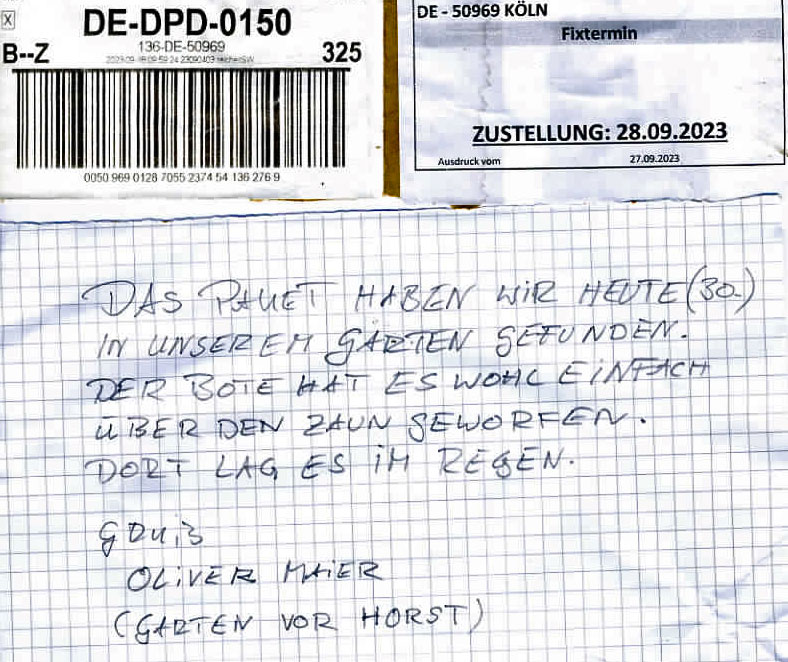 X
DE-DPD-0150
136-DE-50969
B--Z
325
0050 969 0128 7055 2374 54 136 276 9
DE - 50969 KÖLN
Fixtermin
ZUSTELLUNG: 28.09.2023
Ausdruck vom 27.09.2023
DAS PAKET HABEN WIR HEUTE (30.)
IN UNSEREM GARTEN GEFUNDEN.
DER BOTE HAT ES WOHL EINFACH
ÜBER DEN ZAUN GEWORFEN.
DORT LAG ES IM REGEN.
GRUß
OLIVER MAIER
(GARTEN VOR HORST)